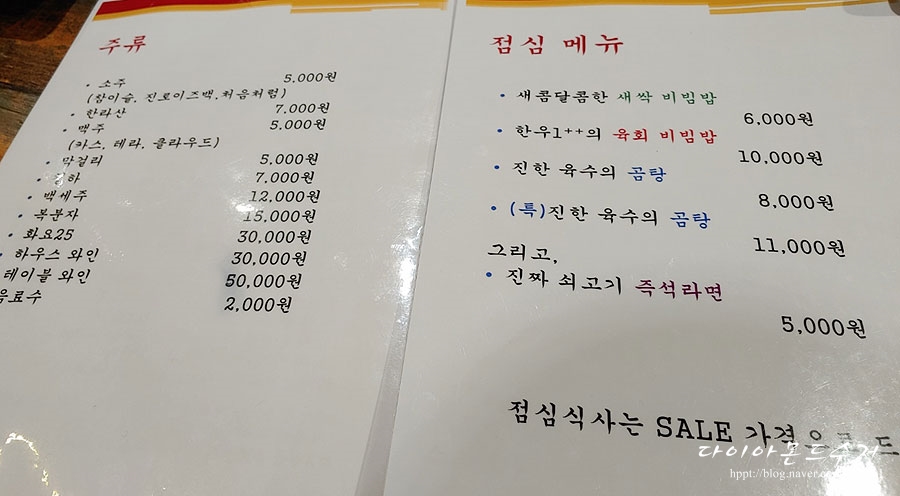 주류
• 소주 5,000원
(참이슬, 진로이즈백, 처음처럼)
• 한라산 7,000원
• 맥주 5,000원
(카스, 테라, 클라우드)
• 막걸리 5,000원
• 7,000원
• 백세주 12,000원
• 복분자 15,000원
• 화요25 30,000원
• 하우스 와인 30,000원
테이블 와인 50,000원
음료수 2,000원
점심 메뉴
• 새콤달콤한 새싹 비빔밥
6,000원
• 한우1++의 육회 비빔밥
10,000원
• 진한 육수의 곰탕
8,000원
• (특)진한 육수의 곰탕
11,000원
그리고,
• 진짜 쇠고기 즉석라면
5,000원
점심식사는 SALE 가격으로
다이아몬드수저
hppt://blog.naver